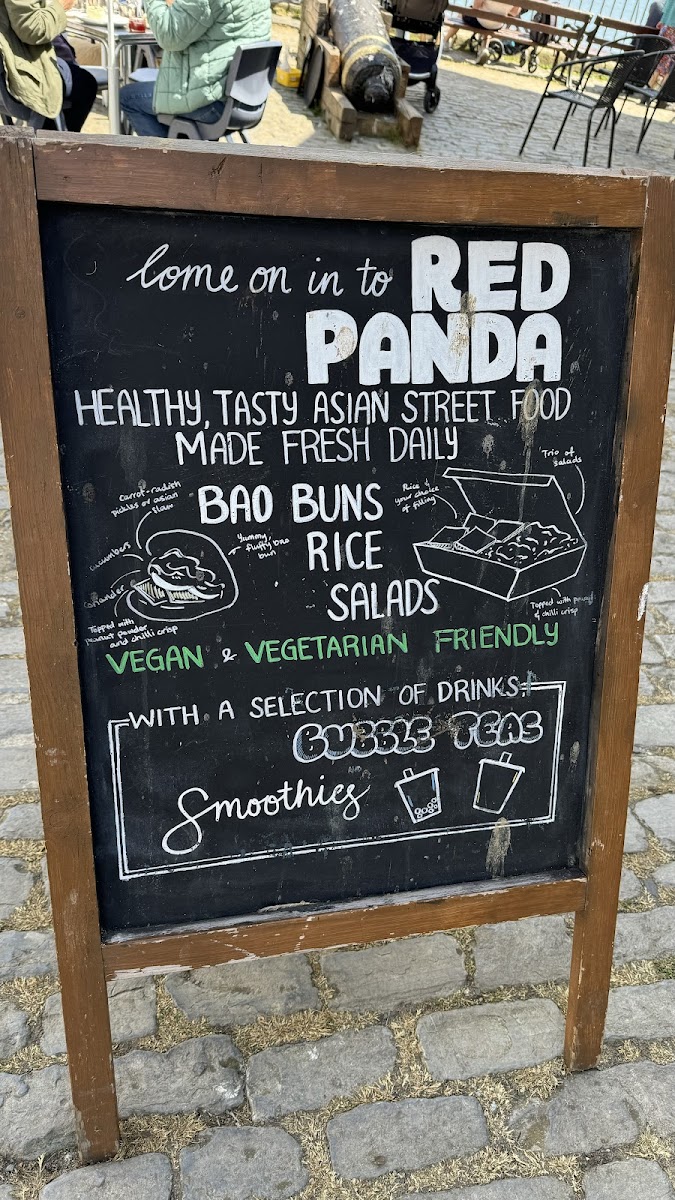 Come on in to RED
PANDA
HEALTHY, TASTY ASIAN STREET FOOD
MADE FRESH DAILY
BAO BUNS
RICE
SALADS
Carrot-radish
pickles or asian
slaw
cucumbers
coriander
Topped with
peanut powder
and chilli crisp
Yummy,
fluffy bao
bun
Rice &
your choice
of filling
Trio of
salads
Topped with
& chilli crisp
VEGAN & VEGETARIAN FRIENDLY
WITH A SELECTION OF DRINKS:
BUBBLE TEAS
Smoothies